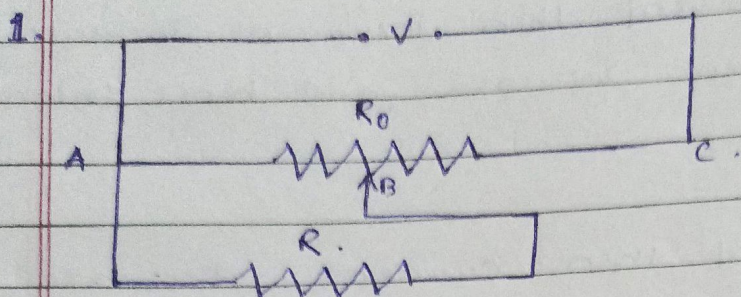 1.
V
R0
A
C.
B
R.